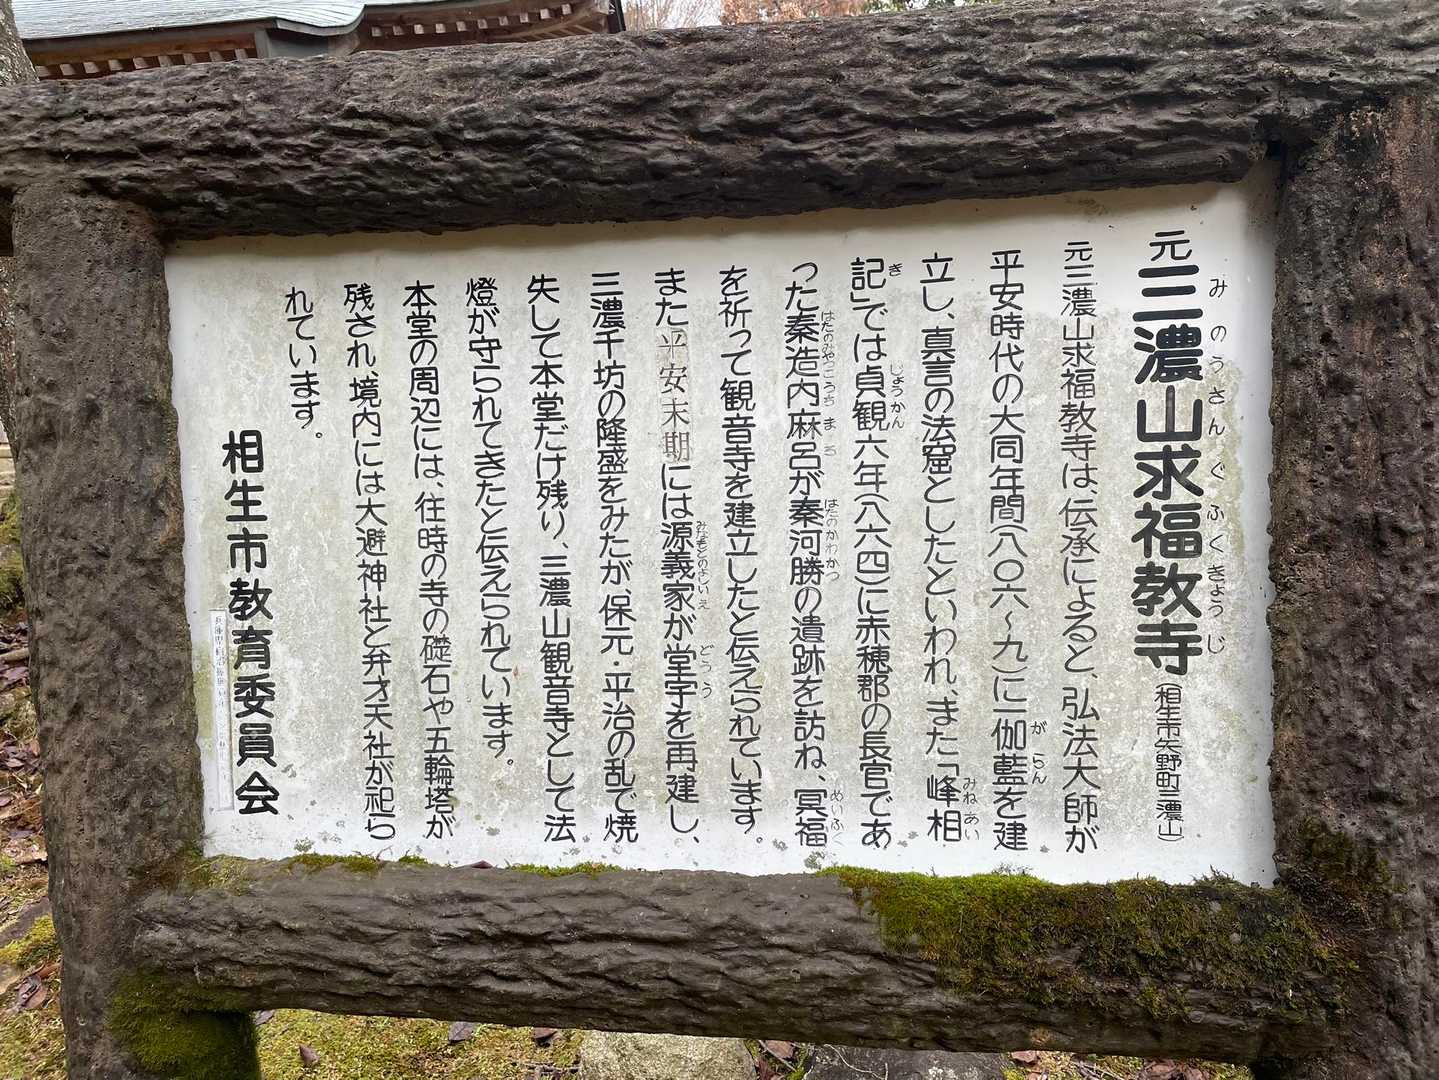 元三濃山求福教寺(相生市矢野町三濃山)
みのうさんぐふくきょうじ
元三濃山求福教寺は、伝承によると、弘法大師が
平安時代の大同年間(八〇六〜九)に伽藍を建
がらん
立し、真言の法窟としたといわれ、また「峰相
みねあい
記」では貞観六年(八六四)に赤穂郡の長官であ
き じょうかん
った秦造内麻呂が秦河勝の遺跡を訪ね、冥福
はたのみやつこうちまろ はたのかわかつ めいふく
を祈って観音寺を建立したと伝えられています。
また平安末期には源義家が堂宇を再建し、
みなもとのよしいえ どうう
三濃千坊の隆盛をみたが、保元・平治の乱で焼
失して本堂だけ残り、三濃山観音寺として法
燈が守られてきたと伝えられています。
本堂の周辺には、往時の寺の礎石や五輪塔が
残され、境内には大避神社と弁才天社が祀ら
れています。
相生市教育委員会